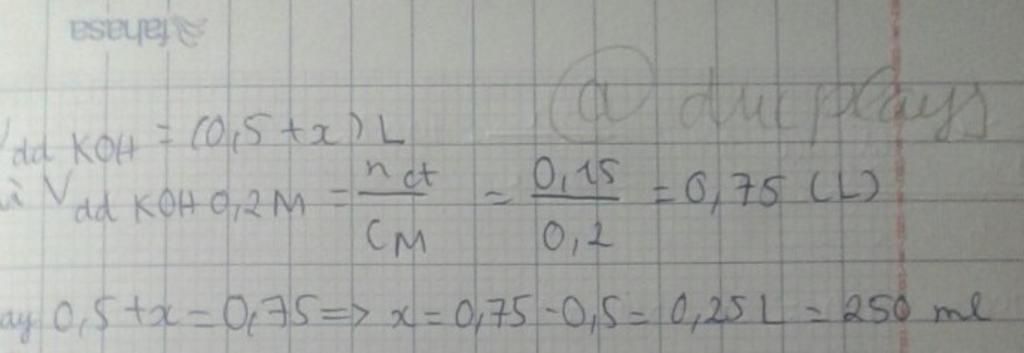 Atahasa
@ ducplays
V dd KOH = (0,5 + x) L
ì V dd KOH 0,2M = n ct / CM = 0,15 / 0,2 = 0,75 (L)
ay 0,5 + x = 0,75 => x = 0,75 - 0,5 = 0,25 L = 250 ml